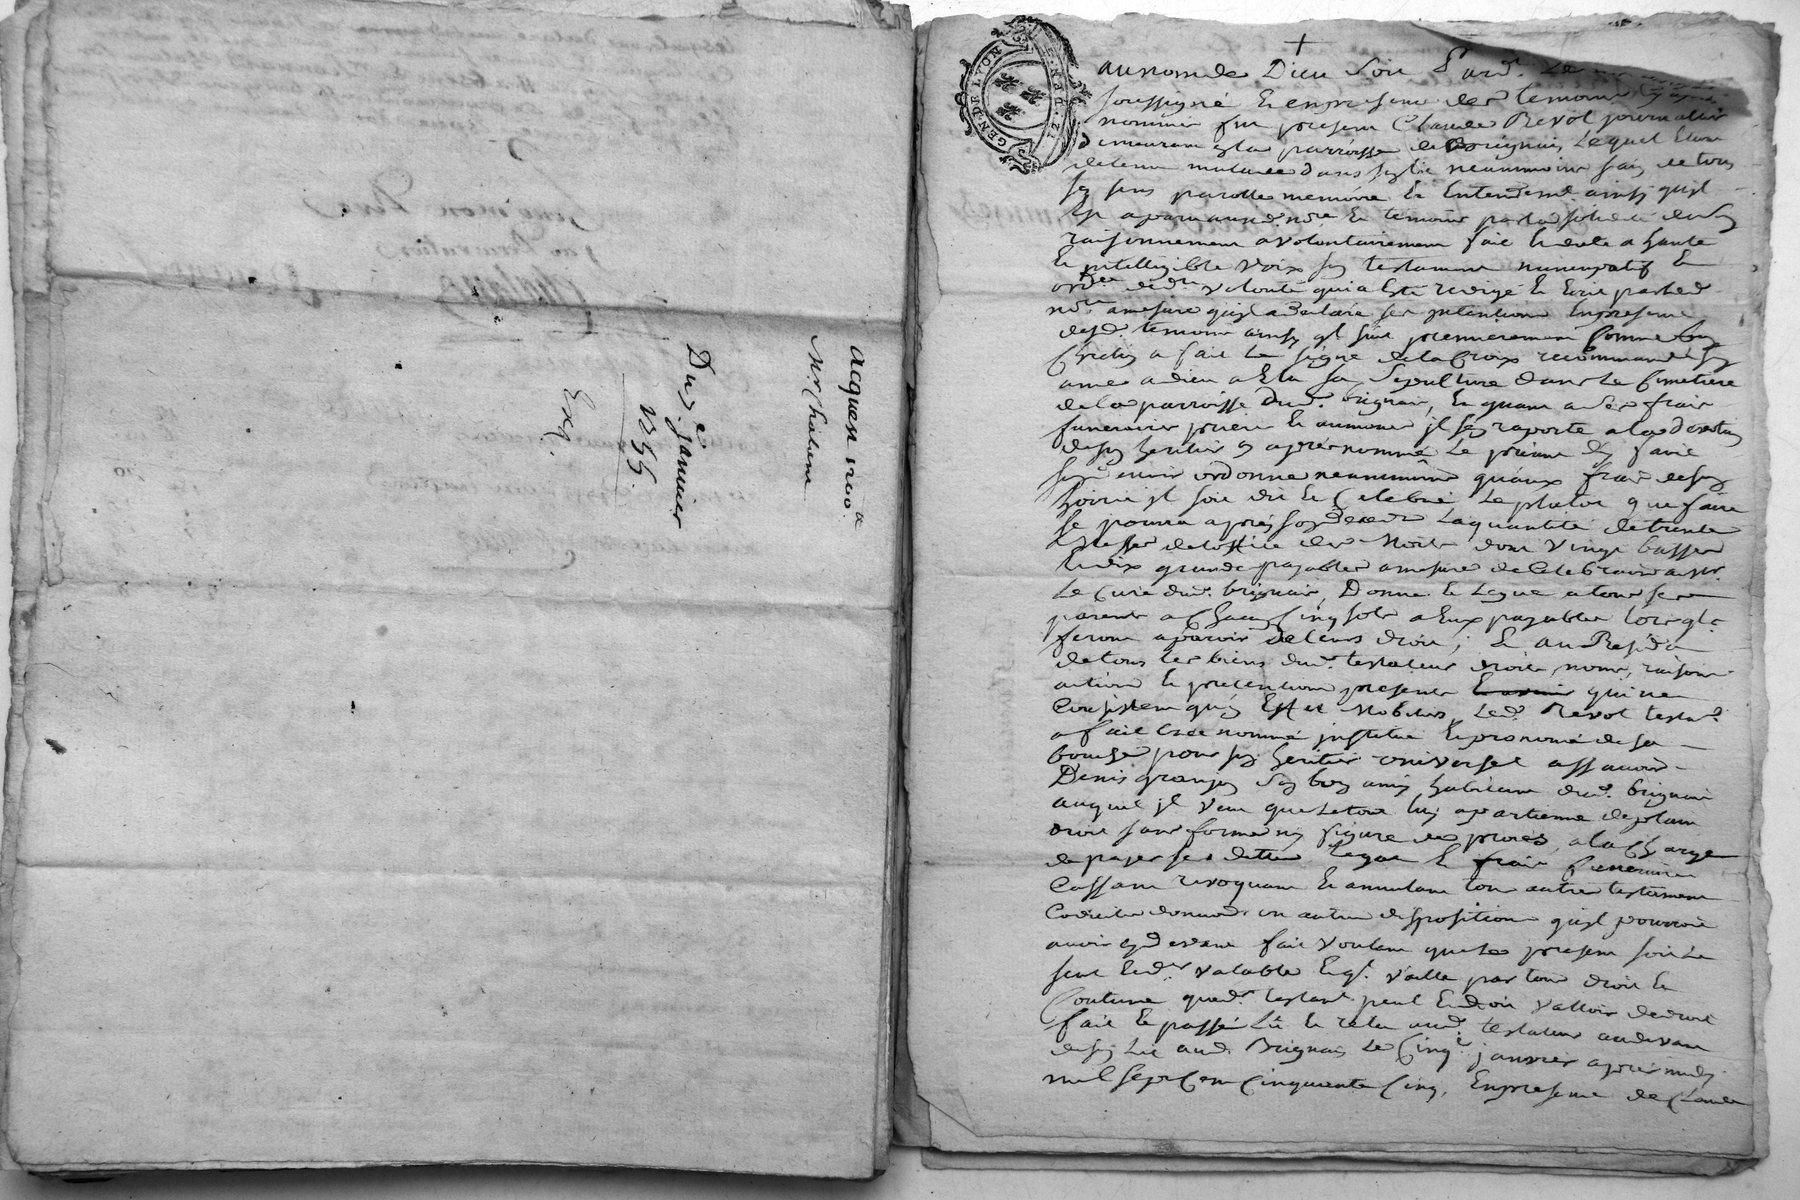 acquen invo.a
Mr. Chalan
Du 7e janvier
1755.
Exq.
GEN. DE LYON
12. DEN. S.
+
au nom de Dieu soit Pard. Le
soussigné et en presence des temoins
nommés fut present Claude Revol journallier
demeurant en la parroisse de Brignais, Lequel etant
detenu malade dans son lit neanmoins sain de tous
ses sens parolle memoire et Entendement ainsy qu'il
est aparu audt nore et temoins par la solidité de son
raisonnement a volontairement fait et dicté a haute
Et intelligible voix son testament nuncupatif et
ordce de dre volonté qui a été redigé et Ecrit par led
nore a mesure qu'il a declaré ses intentions En presence
desd temoins ainsy ql suit premierement comme bon
Chretien a fait Le signe de la Croix recommandé son
ame a dieu a Elu sa Sepulture dans Le Cimetiere
de la parroisse dud. brignais, Et quant a ses frais
funeraires prieres et aumones jl s'en raporte a la devotion
de son heritier cy après nommé Le priant d'en faire
son devoir ordonne neanmoins qu'aux frais de son
hoirie jl soit dit et Celebré Le plutot que faire
se pourra après son deced La quantité de trente
Messes de loffice des Morts dont vingt basses
et dix grandes payables a mesure de Celebration au sr.
Le Curé dud. brignais, Donne et Legue a tous ses
parents a Chacun Cinq sols a Eux payables lors ql.s
feront aparoir de leurs droits; Et au Residu
de tous les biens dud. testateur droits, noms, raisons
actions et pretentions presents et avenir qui ne
Consistent qu'en Effets Mobiliers, Led. Revol testat.
a fait créé nommé jnstitué Et prononcé de sa
bouche pour son heritier universel assavoir
Denis granjon son bon amy habitant dud. brignais
auquel jl veut que le tout luy apartienne de plain
droit sans forme ny figure de procès, a la Charge
de payer ses dettes Legats et frais funeraires
Cassant revoquant Et annulant tout autre testament
Codicile donnaon ou autres dispositions qu'il pourroit
avoir cy devant fait voulant que le present soit le
seul Et dr valable Et ql. vaille par tout droit et
Coutume que dt testant peut Et doit valloir de droit
fait Et passé Lû et relu aud testateur au devant
de son Lit aud. Brignais Le Cinqe. janvier après midy
mil sept Cent Cinquante Cinq, En presence de Claude